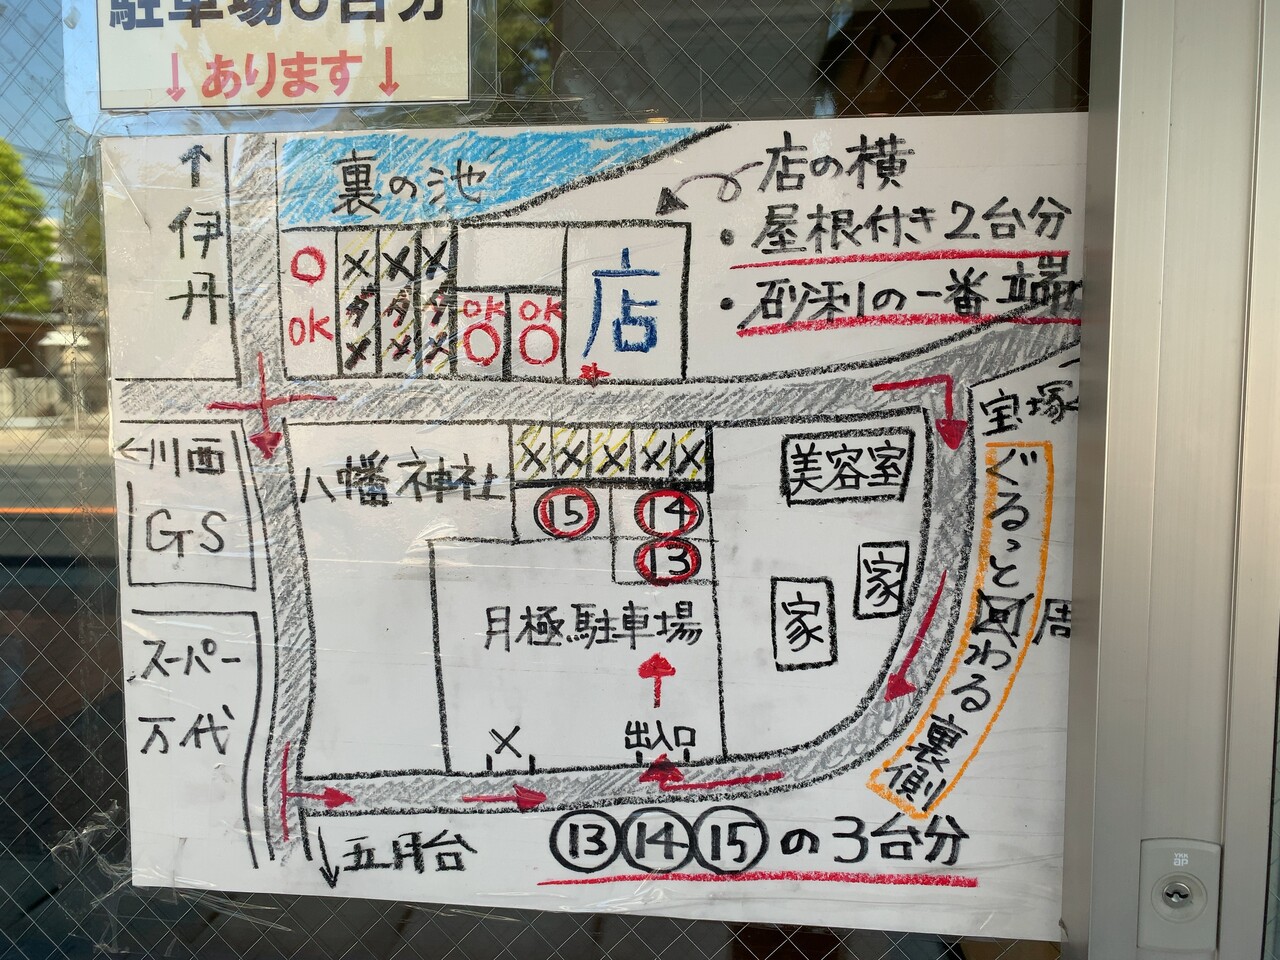 駐車場6台分
↓あります↓
↑伊丹
裏の池
店の横
・屋根付き2台分
・砂利の一番端
OK
×ダ×
×ダ×
×ダ×
OK
OK
店
宝塚
←川西
GS
八幡神社
×××××
⑮
⑭
⑬
美容室
家
家
月極駐車場
スーパー
万代
×
出入口
ぐるっと周わる裏側
↓五月台
⑬⑭⑮の3台分
YKK
ap